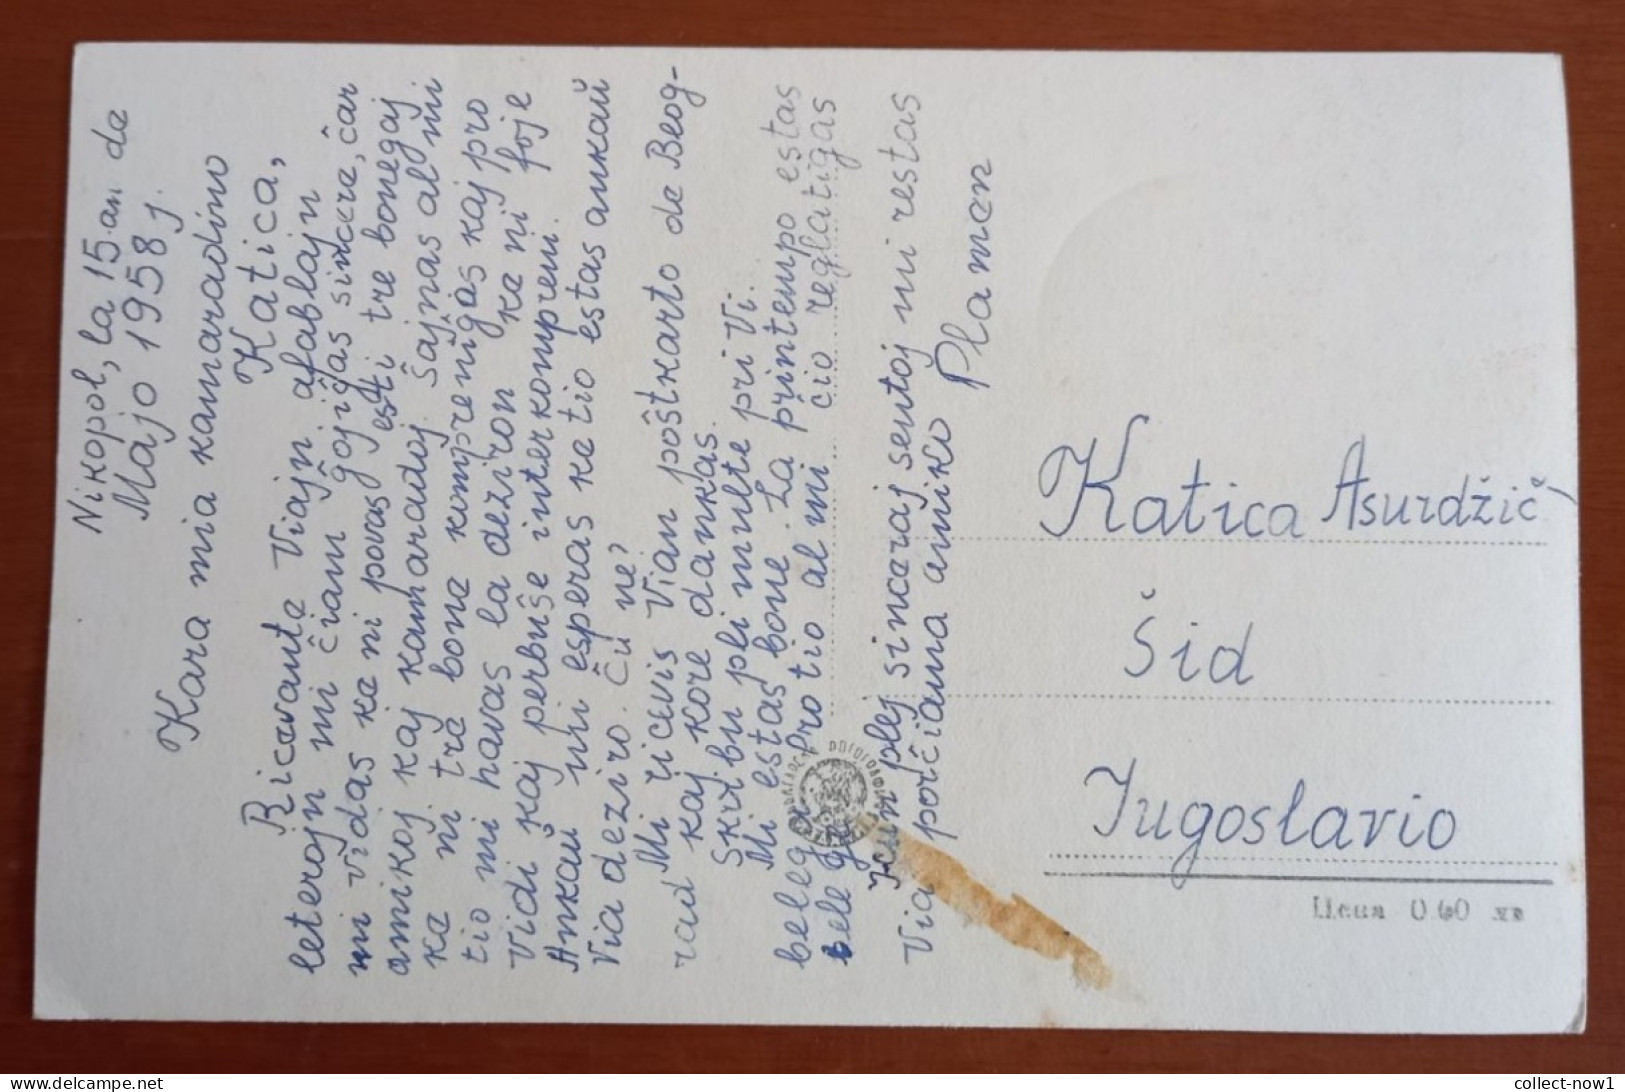 Nikopol, la 15-an de
Majo 1958 j.
Kara mia kamaradino
Katica,
Ricevante Viajn afablajn
leterojn mi ĉiam gojiĝas sincere, ĉar
mi vidas ke ni povas esti tre bonegaj
amikoj kaj kamaradoj. Ŝajnas al mi
ke ni tre bone kompreniĝas kaj pro
tio mi havas la deziron ke ni foje
Vidi kaj perbuŝe interkompreni.
Ankaŭ mi esperas ke tio estas ankaŭ
Via deziro. Ĉu ne?
Mi ricevis Vian poŝtkarto de Beog-
rad kaj kore dankas.
Skribu pli multe pri Vi.
Mi estas bone. La printempo estas
belega. Pro tio al mi ĉio reglatigas
belega
Kun plej sinceraj sentoj mi restas
Via porĉiama amiko
Plamen
Katica Asurdžič
Šid
Jugoslavio
Цена 0.60 лв
collect-now1